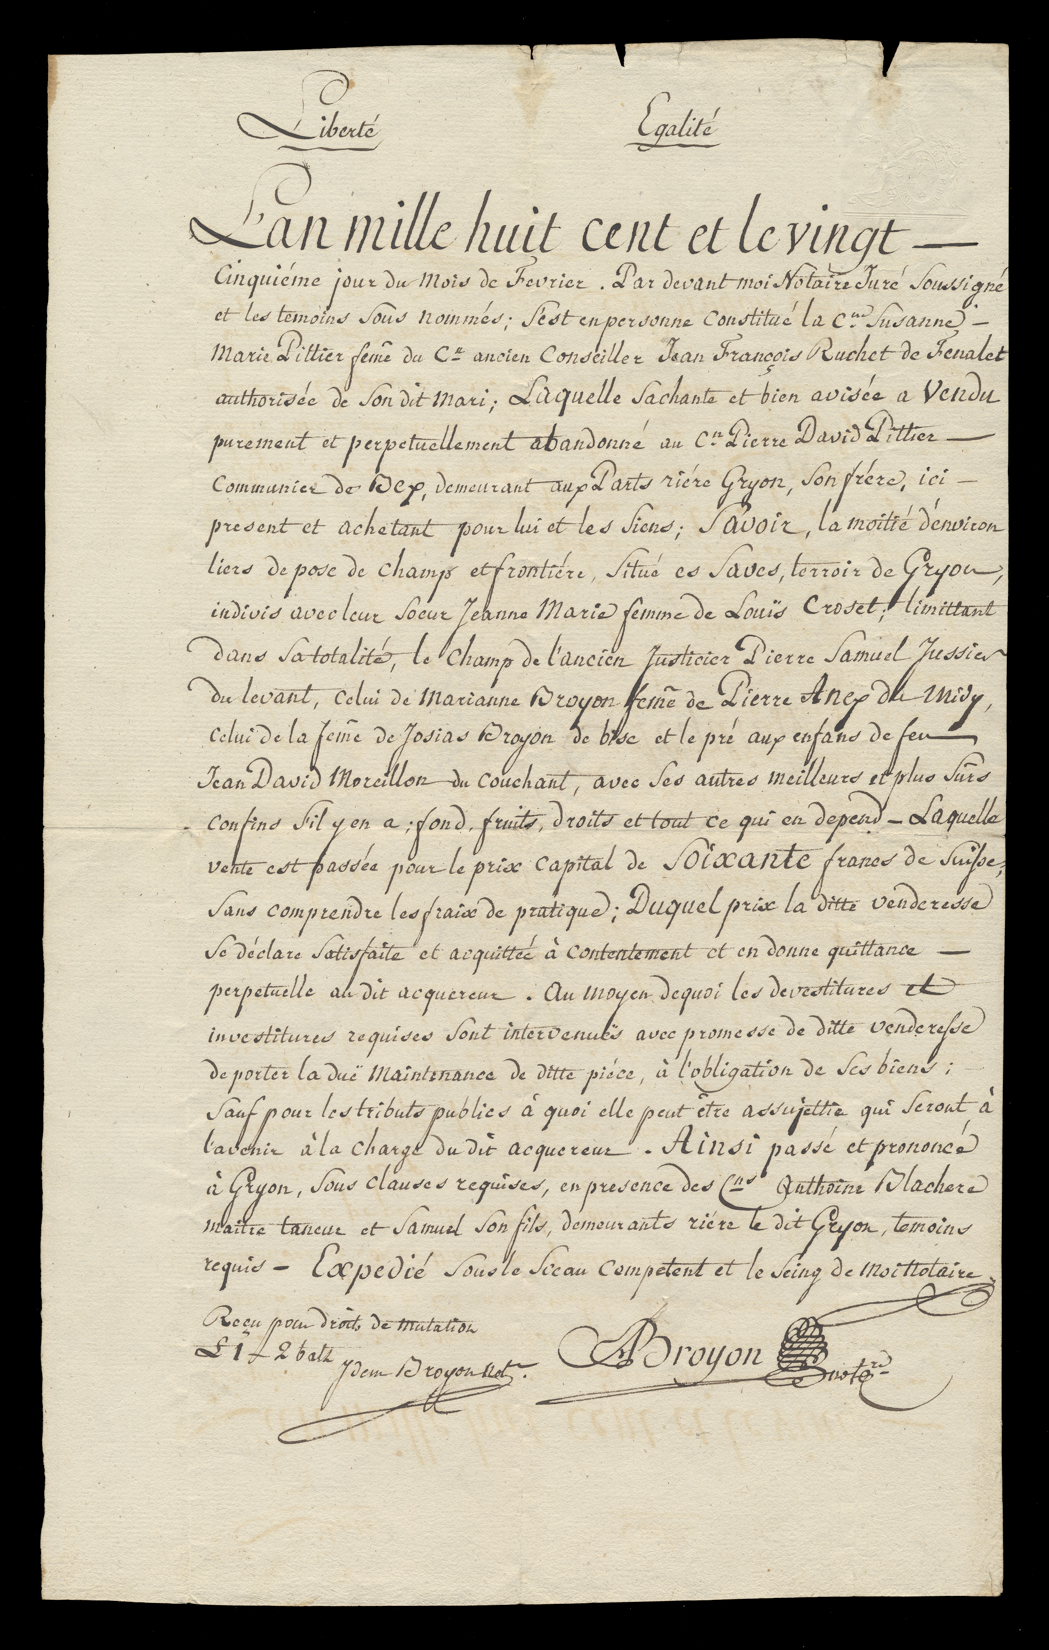 Liberté Egalité
L'an mille huit cent et le vingt —
Cinquiéme jour du Mois de Fevrier . Par devant moi Notaire Juré Soussigné
et les temoins Sous nommés ; S'est en personne Constitué la C.ne Susanne —
Marie Pittier feme du C.n ancien Conseiller Jean François Ruchet de Fenalet
authorisée de Son dit Mari ; Laquelle Sachante et bien avisée a Vendu
purement et perpetuellement abandonné au C.n Pierre David Pittier —
Communier de Bex, demeurant aux Parts riére Gryon, Son frére, ici —
present et achetant pour lui et les Siens ; Sávoir, la moitié d'environ
liers de pose de champ et frontiére, Situé es Saves, terroir de Gryon,
indivis avec leur Soeur Jeanne Marie femme de Louïs Croset ; limittant
dans Sa totalité, le Champ de l'ancien Justicier Pierre Samuel Jussier
du levant, Celui de Marianne Broyon feme de Pierre Anex du Midy,
Celui de la feme de Josias Broyon de bise et le pré aux enfans de feu
Jean David Moreillon du Couchant, avec Ses autres meilleurs et plus Sûrs
Confins S'il y en a ; fond, fruits, droits et tout ce qui en depend — Laquelle
vente est passée pour le prix Capital de Soixante francs de Suisse,
Sans comprendre les fraix de pratique ; Duquel prix la ditte venderesse
Se déclare Satisfaite et acquittée à Contentement et en donne quittance —
perpetuelle au dit acquereur . Au moyen dequoi les devestitures et
investitures requises Sont intervenuës avec promesse de ditte venderesse
de porter la duë Maintenance de ditte piéce, à l'obligation de Ses biens ;
Sauf pour les tributs publics à quoi elle peut être assujettie qui Seront à
l'avenir à la Charge du dit acquereur . Ainsi passé et prononcé
à Gryon, Sous clauses requises, en presence des C.ns Anthoine Blachere
maitre taneur et Samuel Son fils, demeurants riére le dit Gryon, temoins
requis — Expedié Sous le Sceau Competent et le Seing de Moi Notaire
Reçu pour droits de mutation
£ 1 - 2 batz
Idem Broyon Not.r
ABroyon not.re